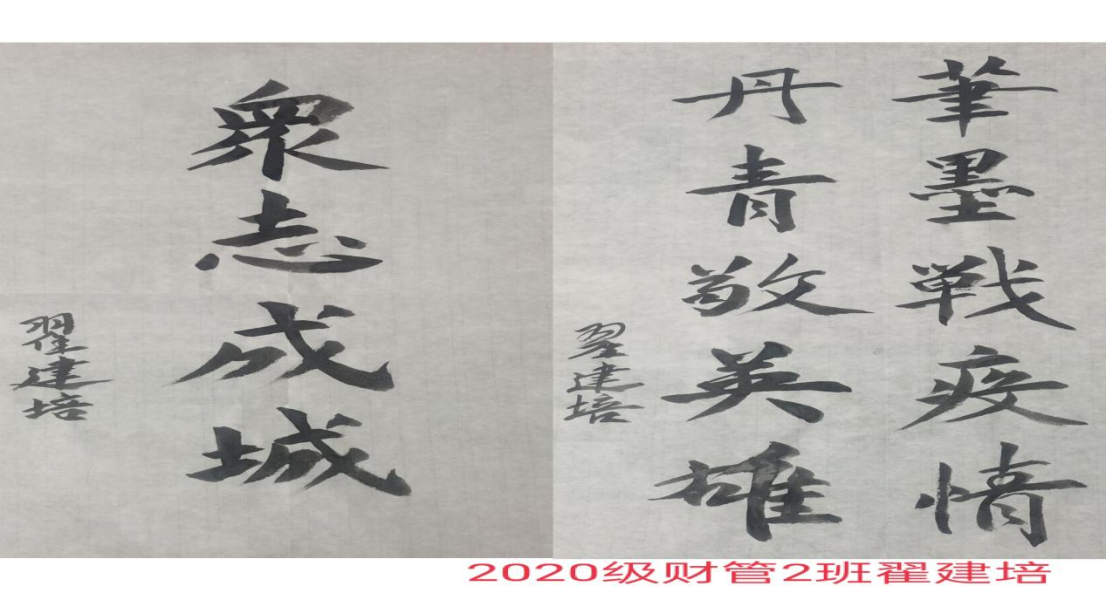 衆志成城
翟建培
筆墨戦疫情
丹青敬英雄
翟建培
2020级财管2班翟建培